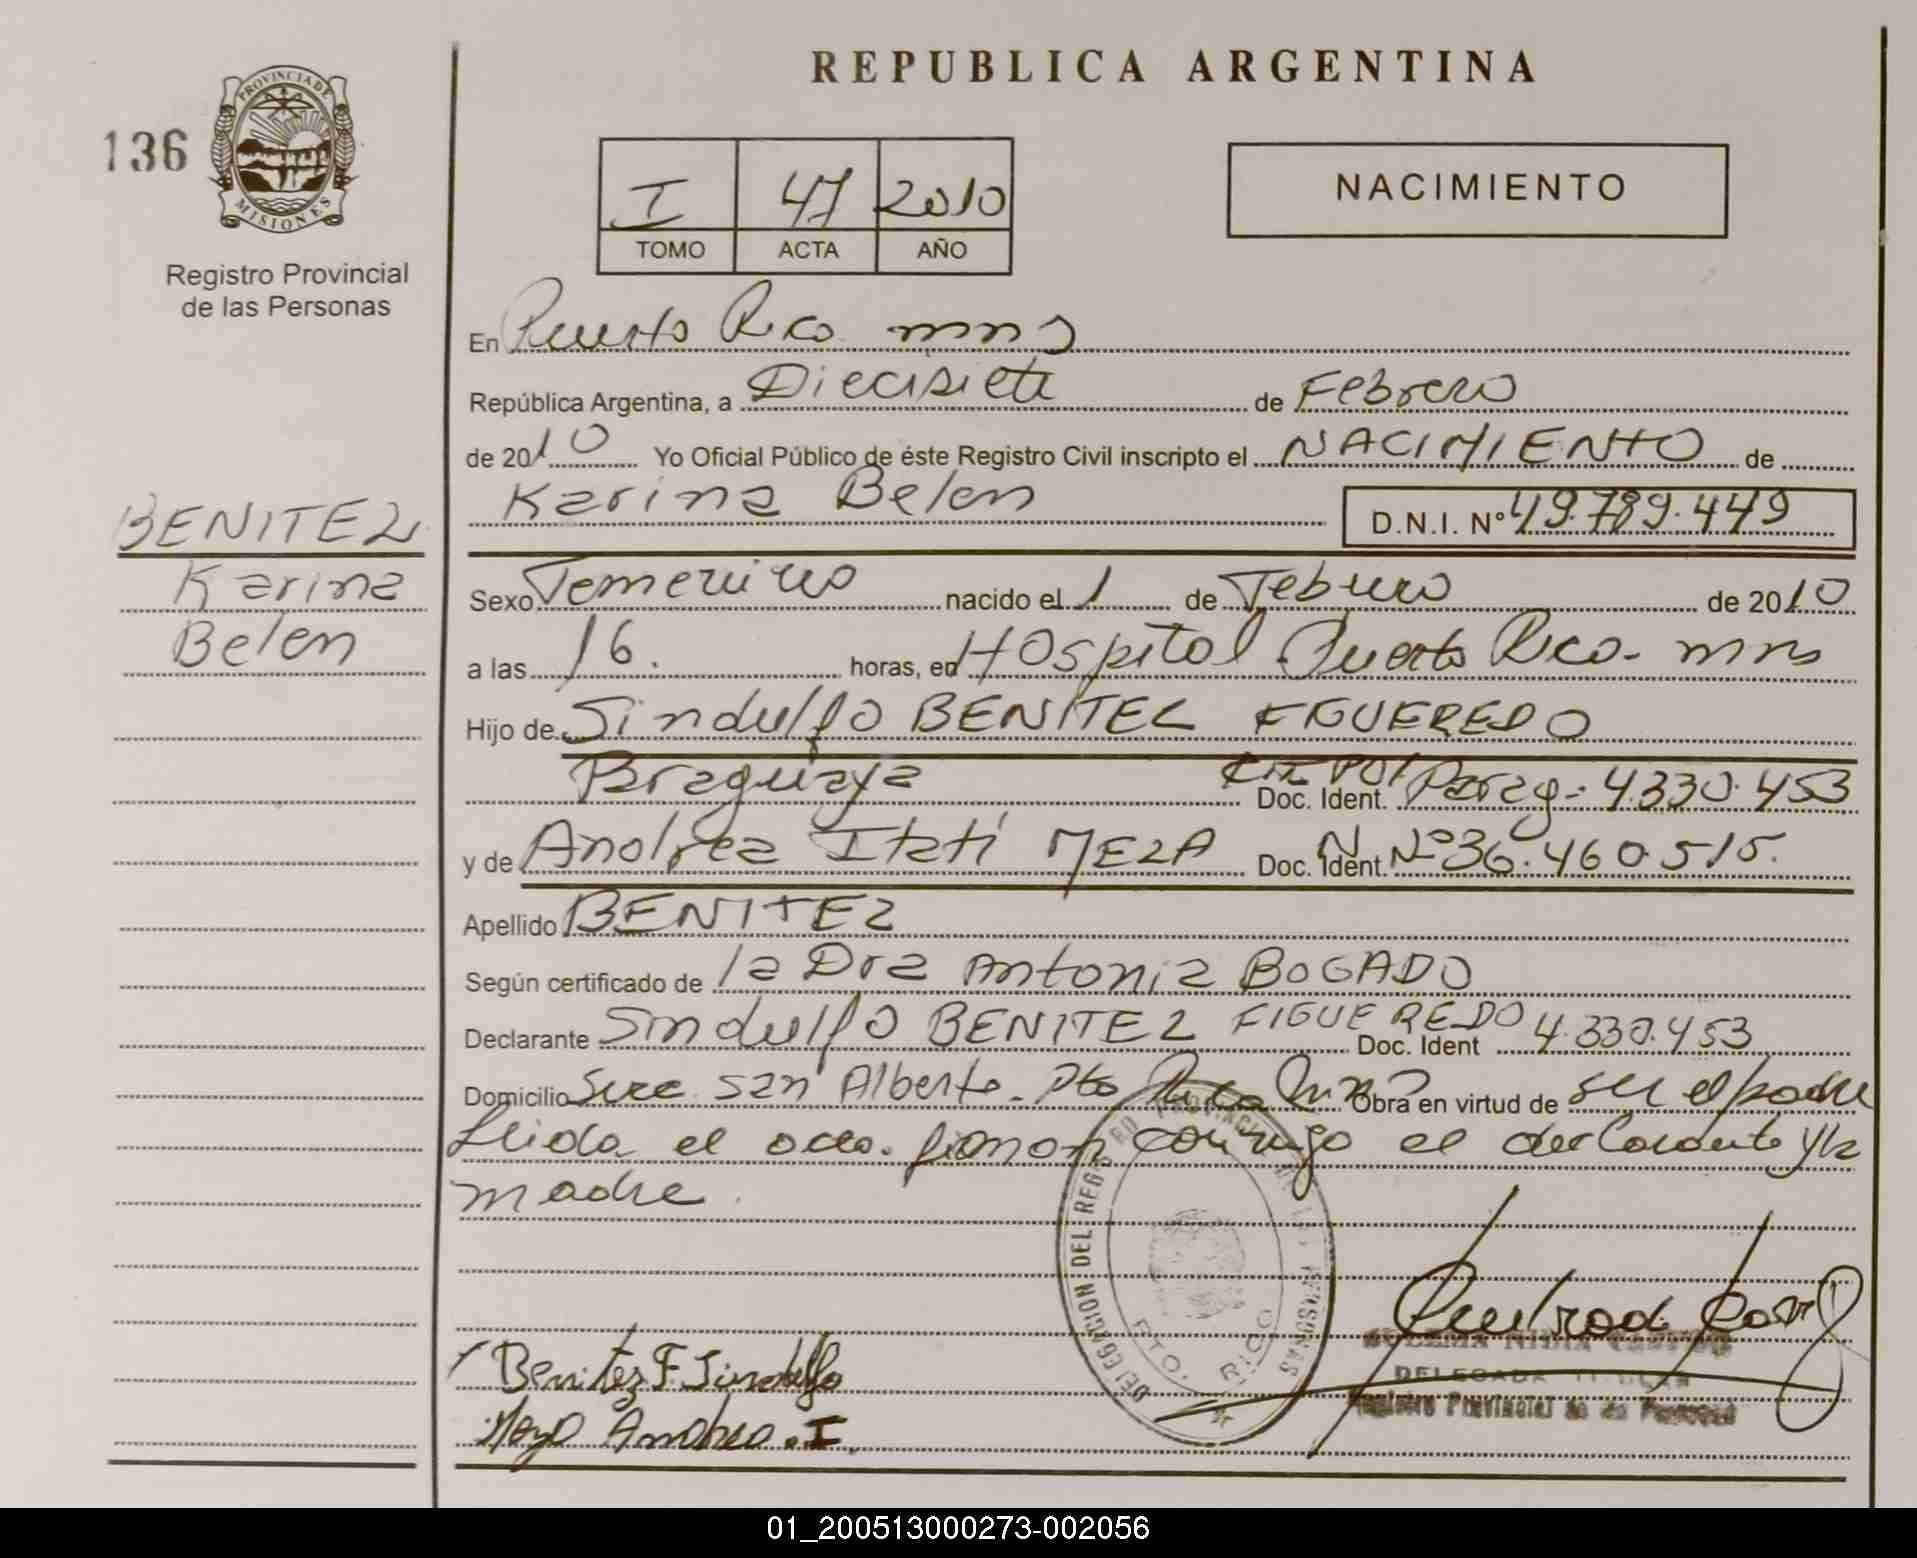 REPUBLICA ARGENTINA
136
PROVINCIA DE
MISIONES
Registro Provincial
de las Personas
I 47 2010
TOMO ACTA AÑO
NACIMIENTO
En Puerto Rico mns
República Argentina, a Diecisiete de Febrero
de 2010 Yo Oficial Público de éste Registro Civil inscripto el NACIMIENTO de
Karina Belen D.N.I. Nº 49.789.449
BENITEZ
Karina
Belen
Sexo Femenino nacido el 1 de Febrero de 2010
a las 16. horas, en Hospital Puerto Rico - mns
Hijo de Sindulfo BENITEZ FIGUEREDO
Paraguaya Doc. Ident. Parag - 4.330.453
y de Andrea Itatí MEZA Doc. Ident. Nº 36.460.515.
Apellido BENITEZ
Según certificado de la Dra Antonia BOGADO
Declarante Sindulfo BENITEZ FIGUEREDO Doc. Ident 4.330.453
Domicilio San Alberto - Pto Rico Obra en virtud de ser el padre
Leida el acta firman conmigo el declarante y la
madre.
DELEGACION DEL REGISTRO PROVINCIAL DE LAS PERSONAS
PTO. RICO
DELEGADA TITULAR
Registro Provincial de las Personas
Benitez F. Sindulfo
Meza Andrea .I.
01_200513000273-002056